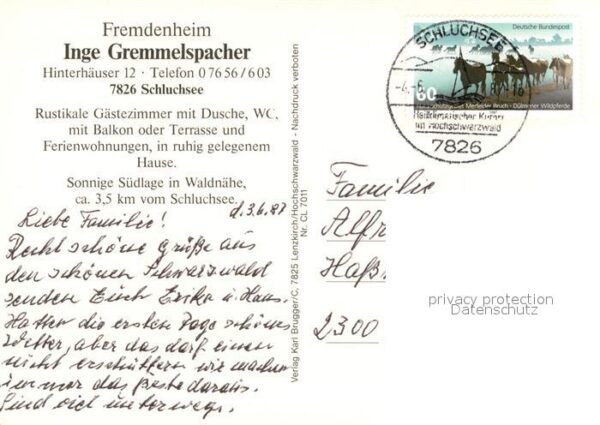 Fremdenheim
Inge Gremmelspacher
Hinterhäuser 12 · Telefon 0 76 56 / 6 03
7826 Schluchsee
Rustikale Gästezimmer mit Dusche, WC,
mit Balkon oder Terrasse und
Ferienwohnungen, in ruhig gelegenem
Hause.
Sonnige Südlage in Waldnähe,
ca. 3,5 km vom Schluchsee.
d. 3.6.87
Liebe Familie!
Recht schöne Grüße aus
den schönen Schwarzwald
senden Euch Erika u. Hans.
Hatten die ersten Tage schönes
Wetter, aber das darf einen
nicht erschüttern wir machen
immer das Beste daraus.
Sind viel unterwegs.
Verlag Karl Brugger/C, 7825 Lenzkirch/Hochschwarzwald - Nachdruck verboten
Nr. CL 7011
Deutsche Bundespost
60
Merfelder Bruch · Dülmener Wildpferde
SCHLUCHSEE
Heilklimatischer Kurort
im Hochschwarzwald
7826
Familie
Alfr
Haß
2300
privacy protection
Datenschutz